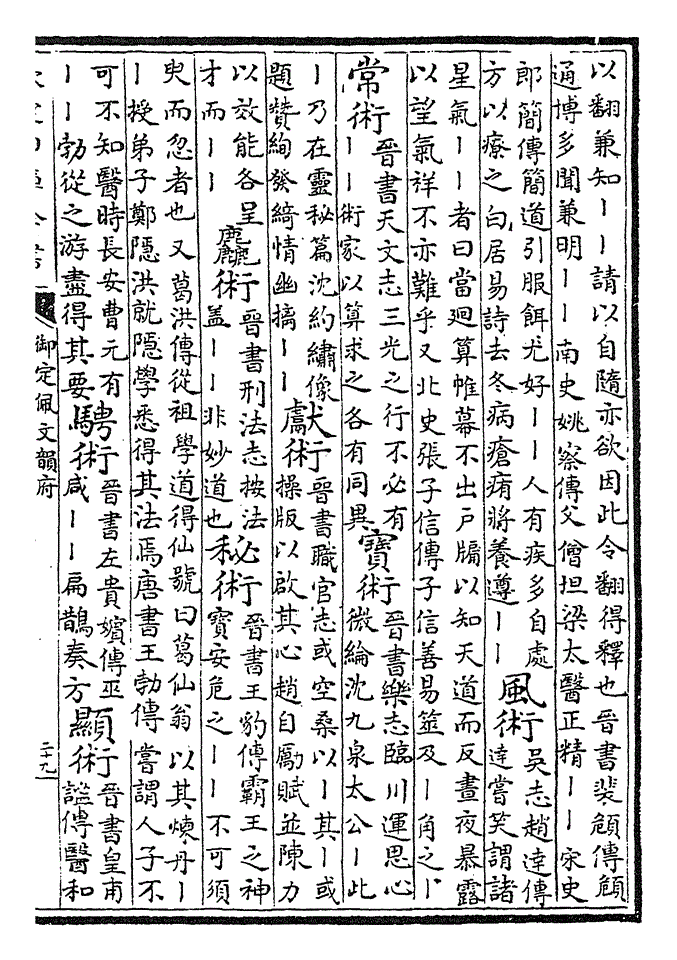 以翻兼知丨丨請以自隨亦欲因此令翻得釋也晉書裴頠傳頠
通博多聞兼明丨丨南史姚察傳父僧坦梁太醫正精丨丨宋史
郎簡傳簡道引服餌尤好丨丨人有疾多自處
方以療之白居易詩去冬病瘡痏將養遵丨丨
風術
吳志趙達傳
達嘗笑謂諸
星氣丨丨者曰當廻算帷幕不出戶牖以知天道而反晝夜暴露
以望氣祥不亦難乎又北史張子信傳子信善易筮及丨角之丨
常術
晉書天文志三光之行不必有
丨丨術家以算求之各有同異
寶術
晉書樂志臨川運思心
微綸沈九泉太公丨此
丨乃在靈秘篇沈約繡像
題贊絢發綺情幽摛丨丨
獻術
晉書職官志或空桑以丨其丨或
操版以啟其心趙自勵賦並陳力
以效能各呈
才而丨丨
麤術
晉書刑法志按法
盖丨丨非妙道也
秘術
晉書王豹傳霸王之神
寶安危之丨丨不可須
臾而忽者也又葛洪傳從祖學道得仙號曰葛仙翁以其煉丹丨
丨授弟子鄭隱洪就隱學悉得其法焉唐書王勃傳嘗謂人子不
可不知醫時長安曹元有
丨丨勃從之游盡得其要
騁術
晉書左貴嬪傳巫
咸丨丨扁鵲奏方
顯術
晉書皇甫
謐傳醫和
御定佩文韻府
二十九